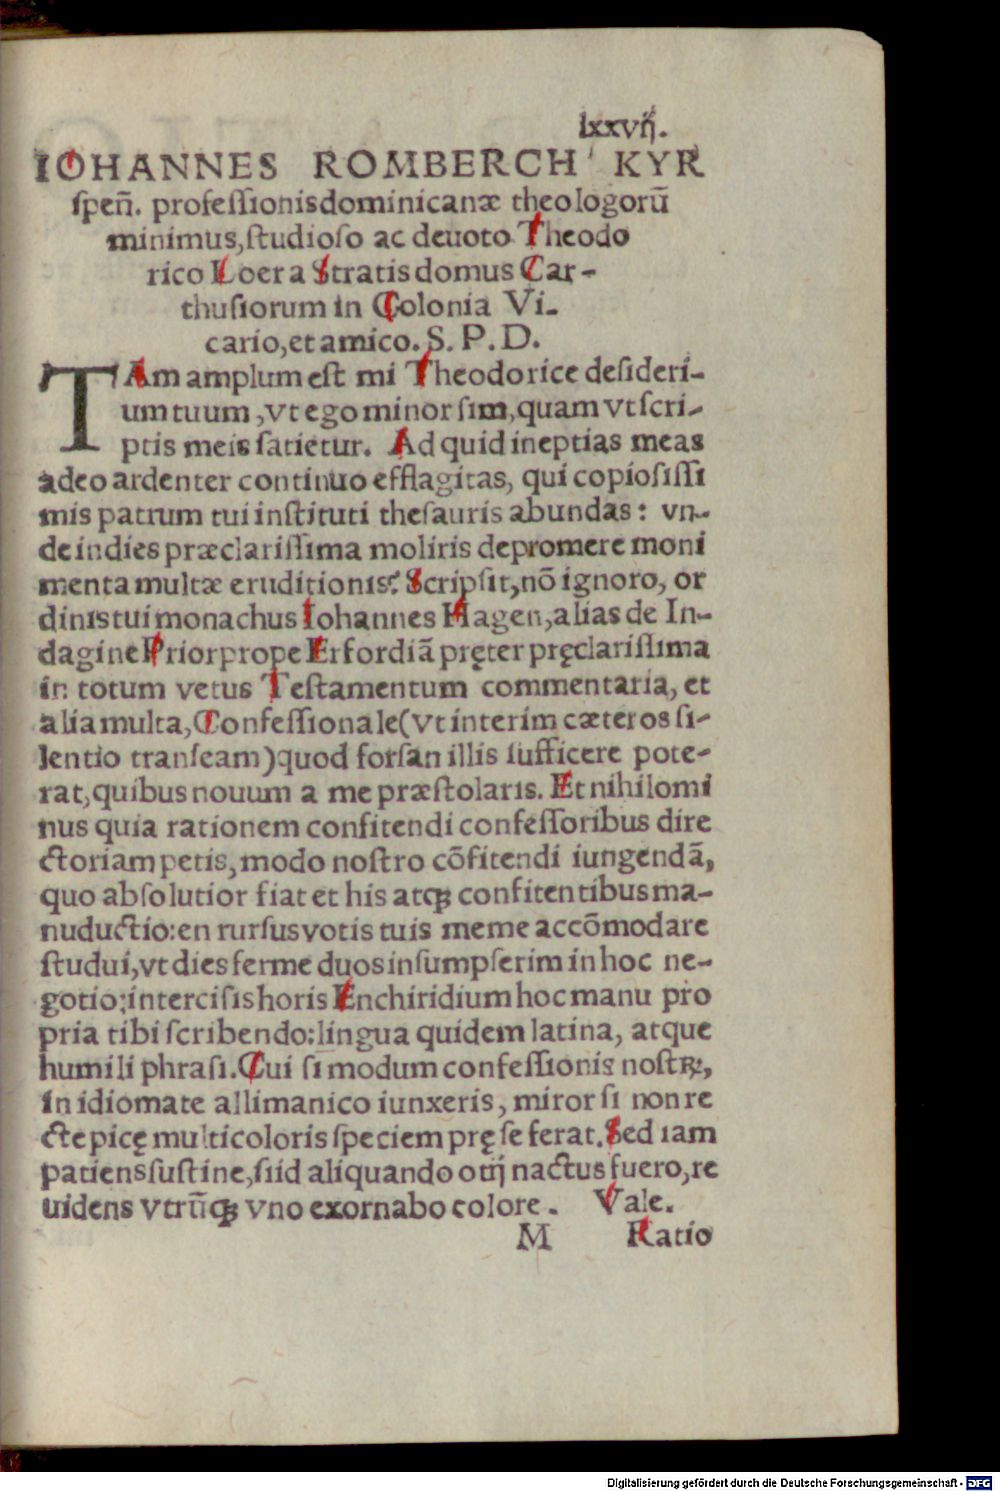 lxxvij.
IOHANNES ROMBERCH KYR
ſpen̄. profeſſionis dominicanæ theologorū
minimus, ſtudioſo ac deuoto Theodo
rico Loer a Stratis domus Car-
thuſiorum in Colonia Vi-
cario, et amico. S. P. D.
TAm amplum eſt mi Theodorice deſideri-
um tuum, vt ego minor ſim, quam vt ſcri-
ptis meis ſatietur. Ad quid ineptias meas
adeo ardenter continuo efflagitas, qui copioſiſſi
mis patrum tui inſtituti theſauris abundas: vn-
de indies præclariſſima moliris depromere moni
menta multæ eruditionis? Scripſit, nō ignoro, or
dinis tui monachus Iohannes Hagen, alias de In-
dagine Prior prope Erfordiā pręter pręclariſſima
in totum vetus Teſtamentum commentaria, et
alia multa, Confeſſionale (vt interim cæteros ſi-
lentio tranſeam) quod forſan illis ſufficere pote-
rat, quibus nouum a me præſtolaris. Et nihilomi
nus quia rationem confitendi confeſſoribus dire
ctoriam petis, modo noſtro cōfitendi iungendā,
quo abſolutior fiat et his atqꝫ confitentibus ma-
nuductio: en rurſus votis tuis meme accōmodare
ſtudui, vt dies ferme duos inſumpſerim in hoc ne-
gotio: interciſis horis Enchiridium hoc manu pro
pria tibi ſcribendo: lingua quidem latina, atque
humili phraſi. Cui ſi modum confeſſionis noſtrę,
in idiomate allimanico iunxeris, miror ſi non re
cte picę multicoloris ſpeciem pręſeferat. Sed iam
patiens ſuſtine, ſiid aliquando otij nactus fuero, re
uidens vtrūqꝫ vno exornabo colore. Vale.
M Ratio
Digitalisierung gefördert durch die Deutsche Forschungsgemeinschaft - DFG